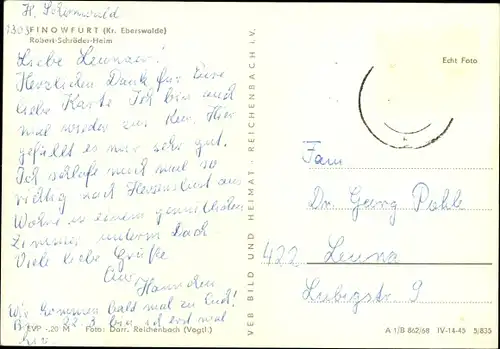 FINOWFURT (Kr. Eberswalde)
Robert-Schröder-Heim
Liebe Leunaer!
Herzlichen Dank für Eure
liebe Karte. Ich bin auch
mal wieder zur Kur. Hier
gefällt es mir sehr gut.
Ich schlafe mich mal so
richtig nach Herzenslust aus
Wohne in einem gemütlichen
Zimmer unterm Dach
Viele liebe Grüße
Hannchen
Wir kommen bald mal zu Euch!
22.3 bin ich erst mal
hier
EVP -,20 M Foto: Darr, Reichenbach (Vogtl.)
VEB BILD UND HEIMAT REICHENBACH i.V.
Echt Foto
Fam
Dr. Georg Pohle
422 Leuna
Liebigstr 9
A 1/B 862/68 IV-14-45 5/835